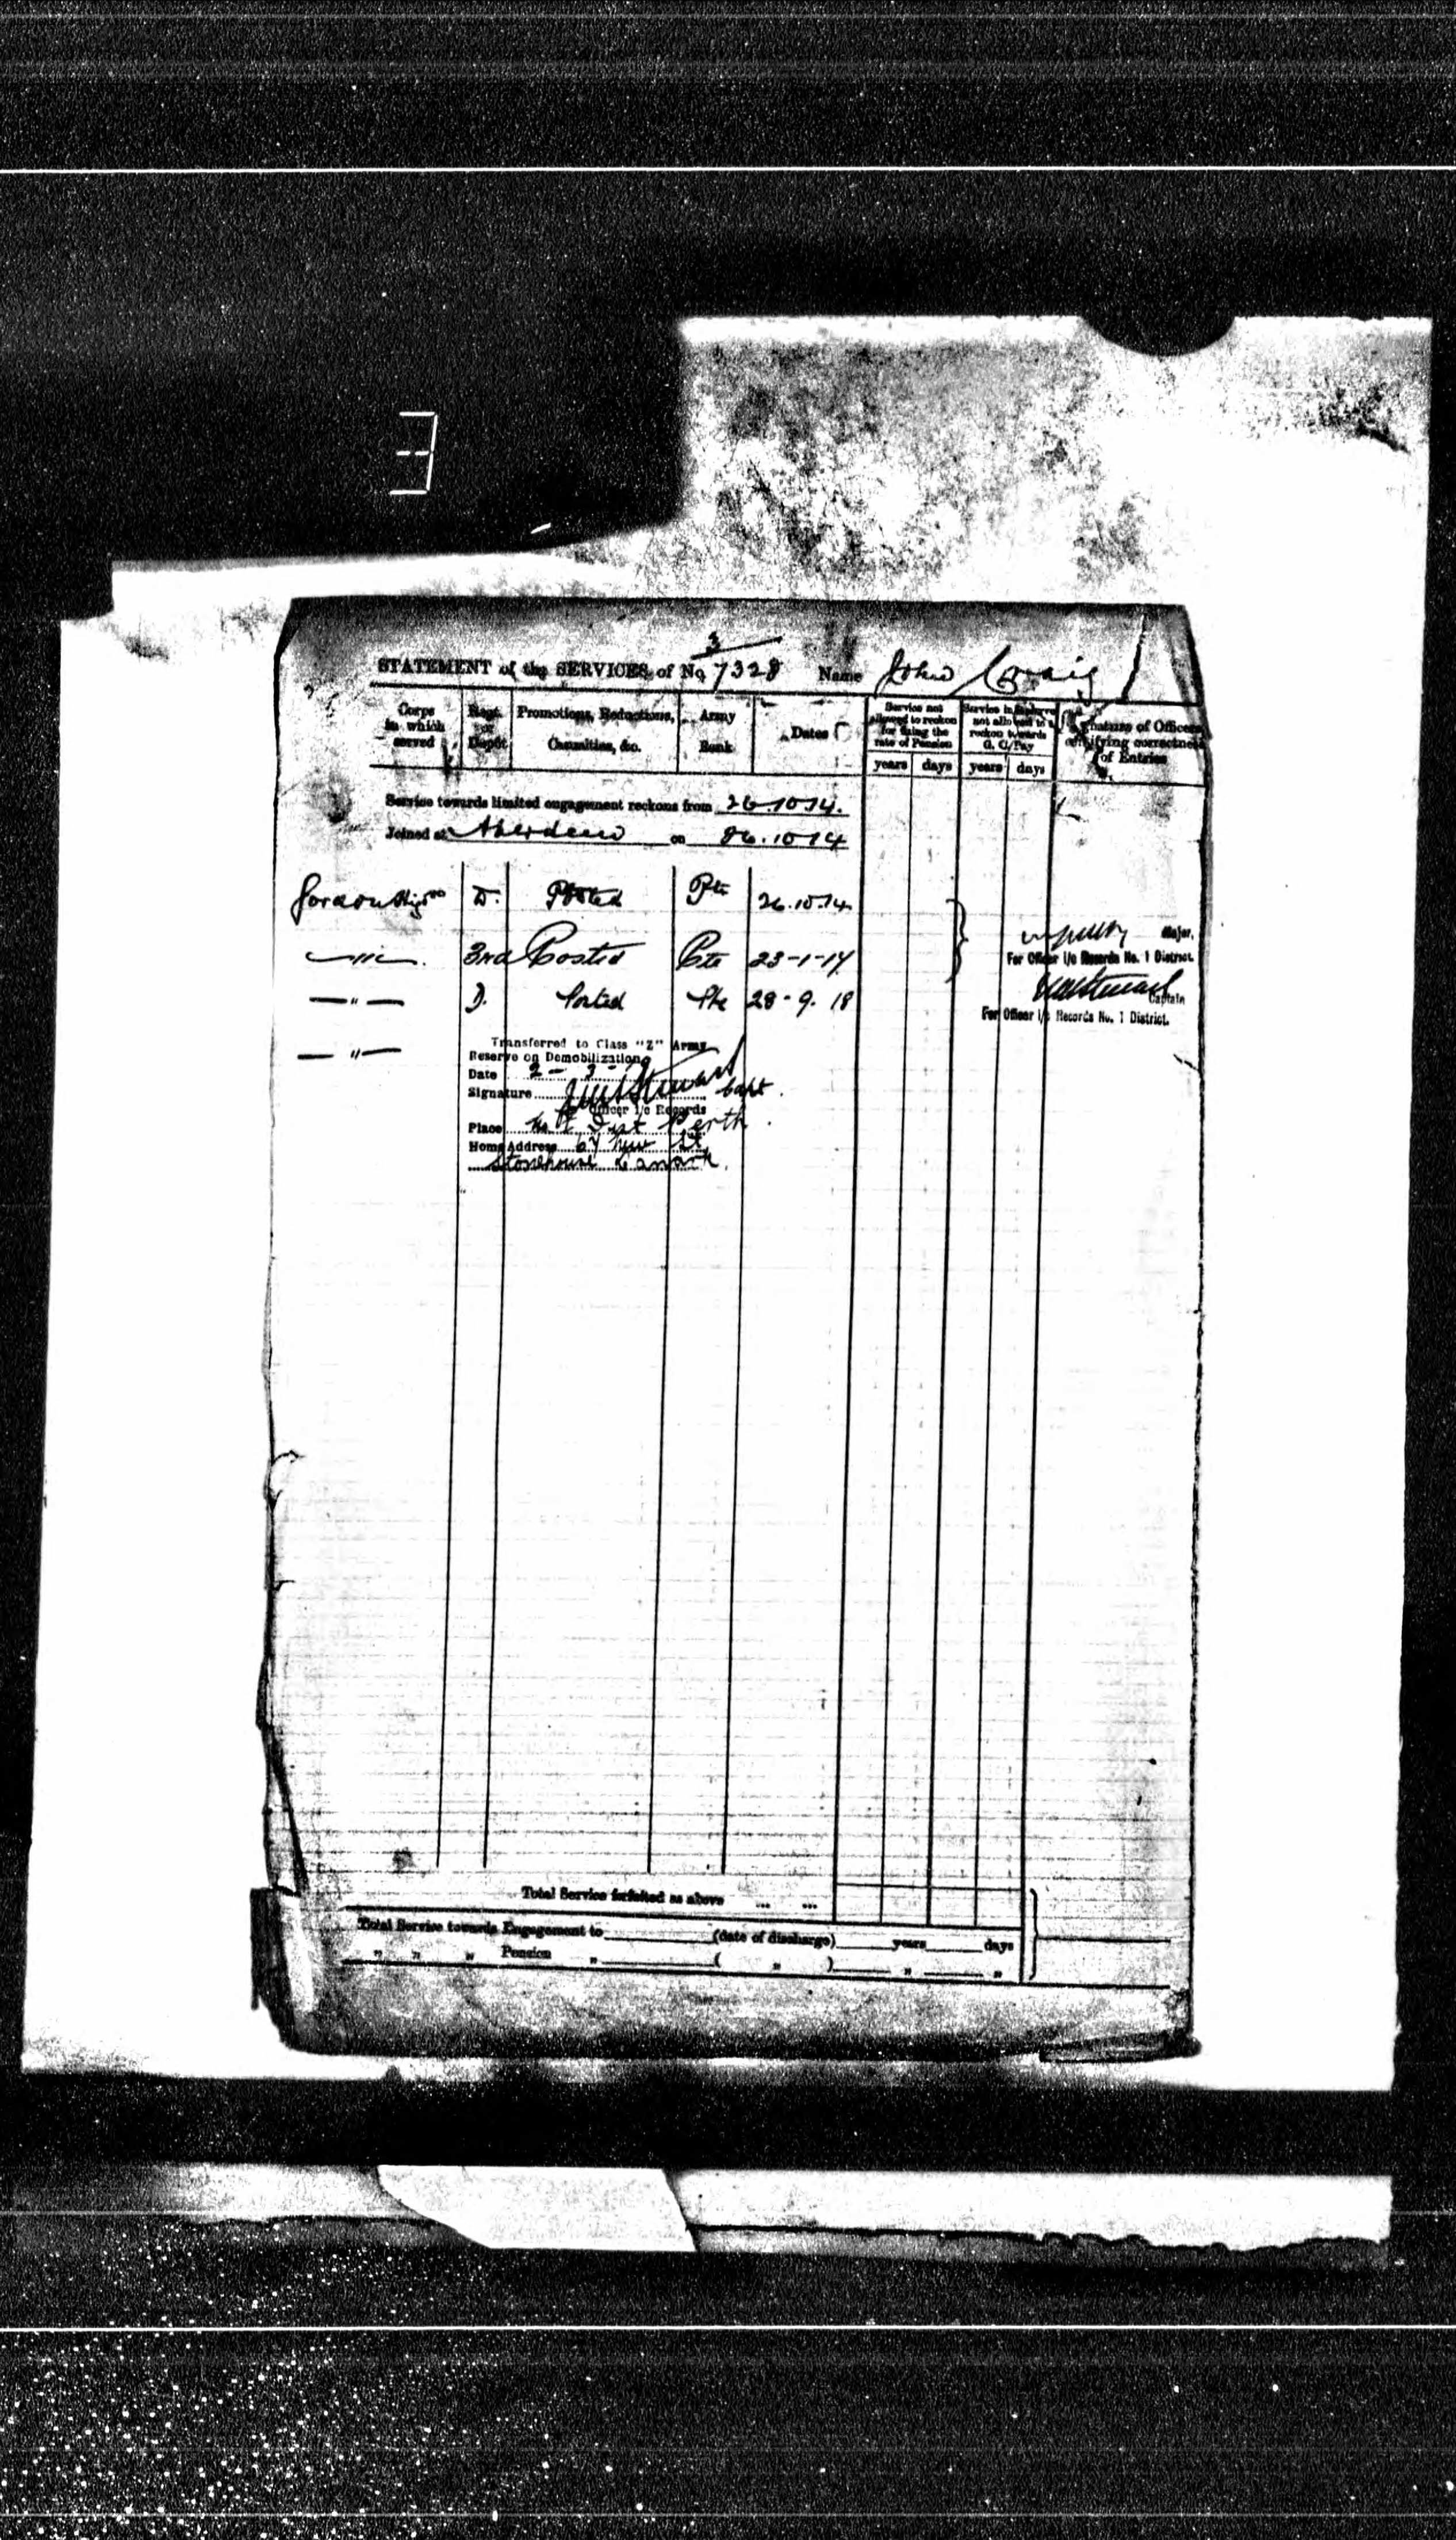 3
STATEMENT of the SERVICES of No 7328 Name John Craig
Corps in which served
Regt. or Depôt
Promotions, Reductions, Casualties, &c.
Army Rank
Dates
Service not allowed to reckon for fixing the rate of Pension
years days
Service in Reserve not allowed to reckon towards G. C. Pay
years days
Signature of Officers certifying correctness of Entries
Service towards limited engagement reckons from 26.10.14.
Joined at Aberdeen on 26.10.14
Gordon Highrs D. Posted Pte 26.10.14.
Major,
—"—. 3rd Posted Pte 23-1-17
For Officer i/c Records No. 1 District.
—"— D. Posted Pte 28-9.18
Captain
For Officer i/c Records No. 1 District.
—"— Transferred to Class "Z" Army
Reserve on Demobilization
Date 2-3-
Signature Stewart Capt.
Officer i/c Records
Place No 1 Dist Perth.
Home Address 67 New St
Stonehouse Lanark.
Total Service forfeited as above ... ...
Total Service towards Engagement to (date of discharge) years days
" " " Pension " ( " ) " "